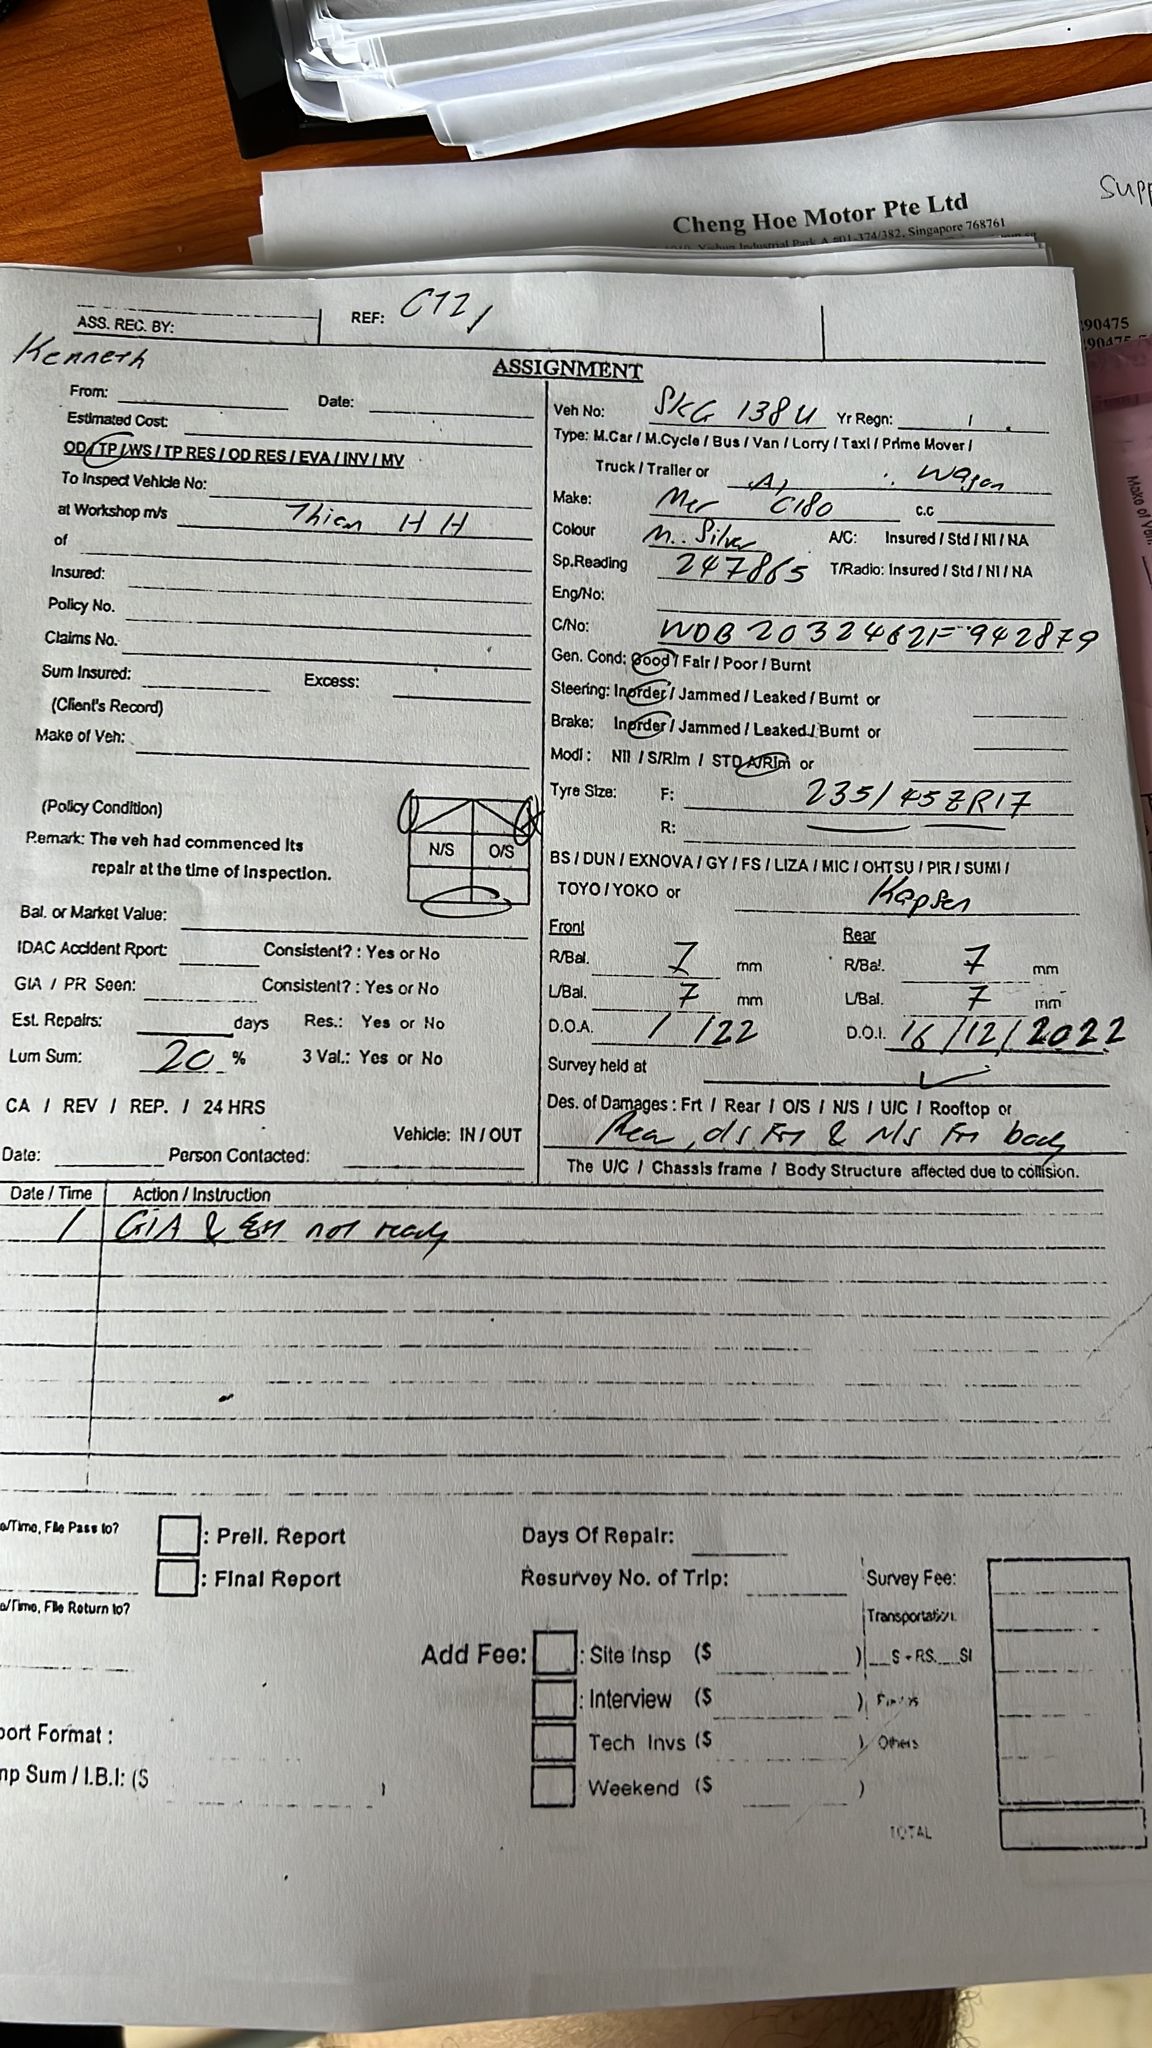 Supp
Cheng Hoe Motor Pte Ltd
Yishun Industrial Park A #01-374/382, Singapore 768761
90475
90475
Make of Veh
ASS. REC. BY:
REF: C72/
Kenneth
ASSIGNMENT
From: Date:
Estimated Cost:
OD / TP / WS / TP RES / OD RES / EVA / INV / MV
To Inspect Vehicle No:
at Workshop m/s Thian H H
of
Insured:
Policy No.
Claims No.
Sum Insured: Excess:
(Client's Record)
Make of Veh:
(Policy Condition)
Remark: The veh had commenced its
repair at the time of inspection.
N/S O/S
Bal. or Market Value:
IDAC Accident Rport: Consistent? : Yes or No
GIA / PR Seen: Consistent? : Yes or No
Est. Repairs: days Res.: Yes or No
Lum Sum: 20 % 3 Val.: Yes or No
CA / REV / REP. / 24 HRS
Vehicle: IN / OUT
Date: Person Contacted:
Veh No: SKG 138U Yr Regn: /
Type: M.Car / M.Cycle / Bus / Van / Lorry / Taxi / Prime Mover /
Truck / Trailer or Wagon
Make: Mer C180 C.C
Colour M.. Silver A/C: Insured / Std / NI / NA
Sp.Reading 247865 T/Radio: Insured / Std / NI / NA
Eng/No:
C/No: WDB2032462F942879
Gen. Cond: Good / Fair / Poor / Burnt
Steering: Inorder / Jammed / Leaked / Burnt or
Brake: Inorder / Jammed / Leaked / Burnt or
Modi: Nil / S/Rim / STD A/Rim or
Tyre Size: F: 235/45ZR17
R:
BS / DUN / EXNOVA / GY / FS / LIZA / MIC / OHTSU / PIR / SUMI /
TOYO / YOKO or Kapsen
Front Rear
R/Bal. 7 mm R/Bal. 7 mm
L/Bal. 7 mm L/Bal. 7 mm
D.O.A. / /22 D.O.I. 16/12/2022
Survey held at
Des. of Damages: Frt / Rear / O/S / N/S / U/C / Rooftop or
Rear, o/s Frt & N/S Frt body
The U/C / Chassis frame / Body Structure affected due to collision.
Date / Time Action / Instruction
/ GIA & Est not ready
e/Time, File Pass to?
: Preli. Report
: Final Report
e/Time, File Return to?
Days Of Repair:
Resurvey No. of Trip:
Survey Fee:
Transportation
Add Fee: : Site Insp ($ ) S - RS. SI
: Interview ($ )
Tech Invs ($ ) Others
Weekend ($ )
TOTAL
port Format :
mp Sum / I.B.I: ($ )